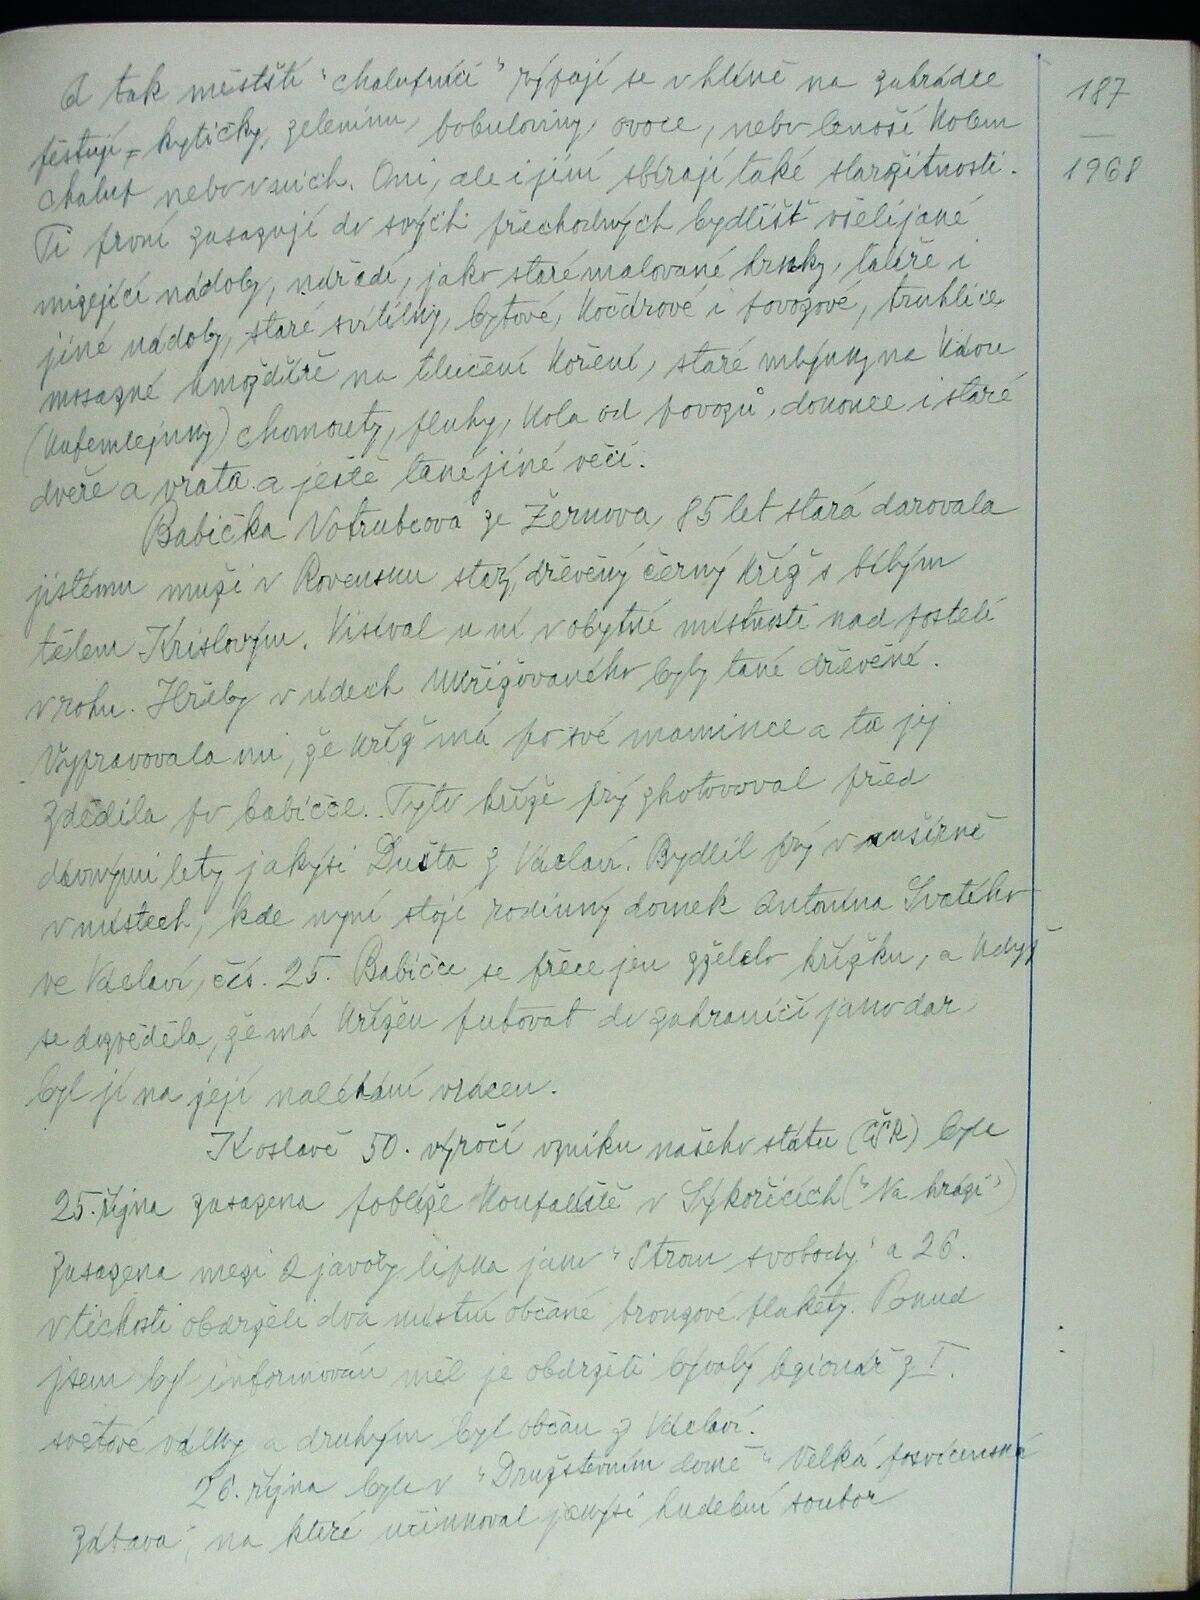 A tak městští "chalupníci" rýpají se v hlíně na zahrádce
pěstují kytičky, zeleninu, bobuloviny, ovoce, nebo lenoší kolem
chalup nebo v nich. Oni, ale i jiní sbírají také starožitnosti.
Ti první zasazují do svých přechodných bydlišť všelijaké
mizející nádoby, nářadí, jako staré malované hrnky, talíře i
jiné nádoby, staré svítilny, bytové, kočárové i povozové, truhlice,
mosazné hmoždíře na tlučení koření, staré mlýnky na kávu
(kafemlejnky) chomouty, pluhy, kola od povozů, dokonce i staré
dveře a vrata a ještě také jiné věci.
Babička Votrubcova ze Žernova, 85 let stará darovala
jistému muži v Rovensku starý, dřevěný černý kříž s bílým
tělem Kristovým. Visíval u ní v obytné místnosti nad postelí
v rohu. Hřeby v údech ukřižovaného byly také dřevěné.
Vypravovala mi, že kříž má po své mamince a ta jej
zdědila po babičce. Tyto kříže prý zhotovoval před
dávnými lety jakýsi Dušta z Václaví. Bydlil prý v sušírně
v místech, kde nyní stojí rodinný domek Antonína Svatého
ve Václaví, čís. 25. Babičce se přece jen zželelo křížku, a když
se dozvěděla, že má křížek putovat do zahraničí jako dar,
byl jí na její naléhání vrácen.
K oslavě 50. výročí vzniku našeho státu (ČSR) byla
25. října zasazena poblíže koupaliště v Sýkořicích ("Na hrázi")
zasazena mezi 2 javory lipka jako "Strom svobody" a 26.
v tichosti obdrželi dva místní občané bronzové plakety. Pokud
jsem byl informován měl je obdržeti bývalý legionář z I.
světové války a druhým byl občan z Václaví.
26. října byla v "Družstevním domě" Velká posvícenská
zábava, na které účinkoval jakýsi hudební soubor
187
1968